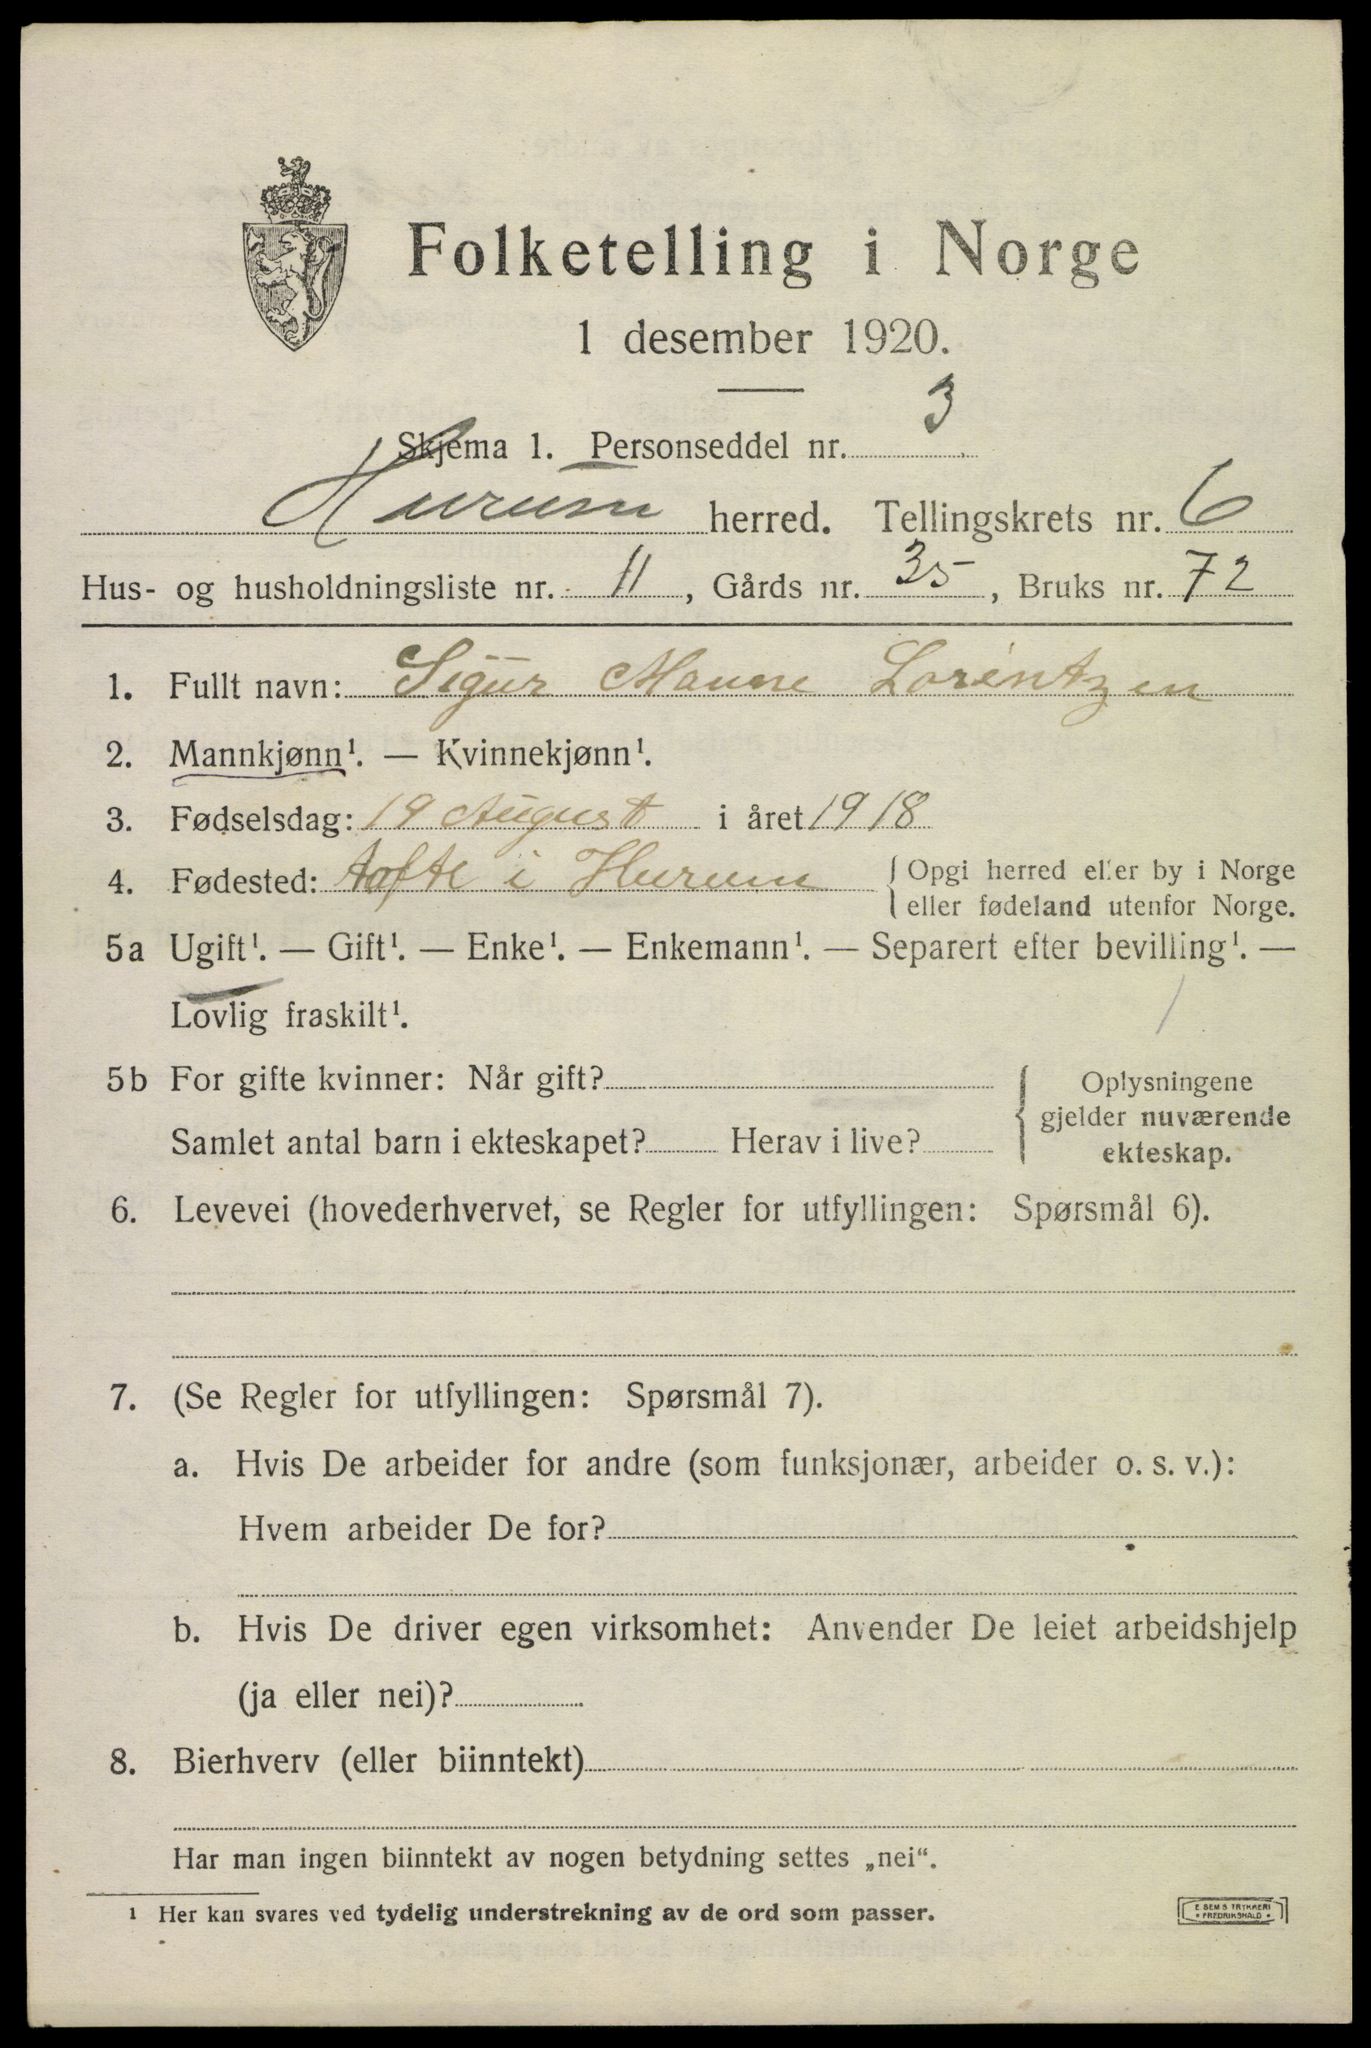 Folketelling i Norge
1 desember 1920.
Skjema 1. Personseddel nr. 3
Hurum herred. Tellingskrets nr. 6
Hus- og husholdningsliste nr. 11, Gårds nr. 35, Bruks nr. 72
1. Fullt navn: Sigur Manne Lorentzen
2. Mannkjønn¹. — Kvinnekjønn¹.
3. Fødselsdag: 19 August i året 1918
4. Fødested: tofte i Hurum {Opgi herred eller by i Norge
eller fødeland utenfor Norge.
5a Ugift¹. — Gift¹. — Enke¹. — Enkemann¹. — Separert efter bevilling¹. —
Lovlig fraskilt¹.
5b For gifte kvinner: Når gift? { Oplysningene
gjelder nuværende
Samlet antal barn i ekteskapet? Herav i live? ekteskap.
6. Levevei (hovederhvervet, se Regler for utfyllingen: Spørsmål 6).
7. (Se Regler for utfyllingen: Spørsmål 7).
a. Hvis De arbeider for andre (som funksjonær, arbeider o. s. v.):
Hvem arbeider De for?
b. Hvis De driver egen virksomhet: Anvender De leiet arbeidshjelp
(ja eller nei)?
8. Bierhverv (eller biinntekt)
Har man ingen biinntekt av nogen betydning settes „nei“.
¹ Her kan svares ved tydelig understrekning av de ord som passer.
E SEMS TRYKKERI
• FREDRIKSHALD •